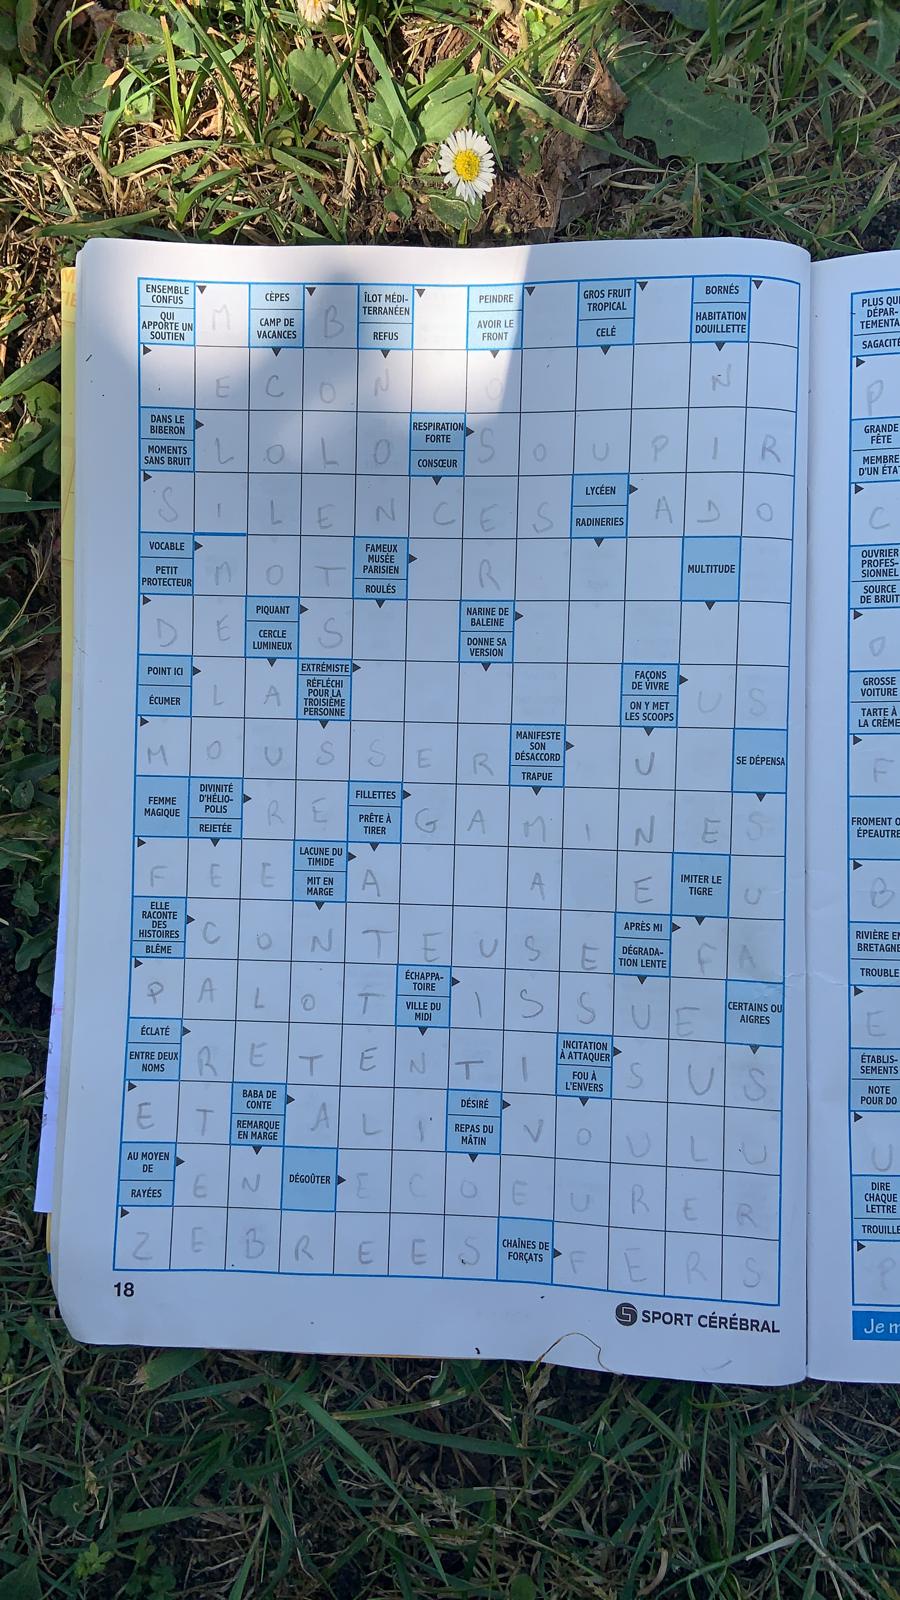 ENSEMBLE CONFUS
QUI APPORTE UN SOUTIEN
M
CÈPES
CAMP DE VACANCES
B
ÎLOT MÉDI-TERRANÉEN
REFUS
PEINDRE
AVOIR LE FRONT
GROS FRUIT TROPICAL
CELÉ
BORNÉS
HABITATION DOUILLETTE
E C O N O N
DANS LE BIBERON
MOMENTS SANS BRUIT
L O L O
RESPIRATION FORTE
CONSŒUR
S O U P I R
S I L E N C E S
LYCÉEN
RADINERIES
A D O
VOCABLE
PETIT PROTECTEUR
M O T
FAMEUX MUSÉE PARISIEN
ROULÉS
R
MULTITUDE
D E
PIQUANT
CERCLE LUMINEUX
S
NARINE DE BALEINE
DONNE SA VERSION
POINT ICI
ÉCUMER
L A
EXTRÉMISTE
RÉFLÉCHI POUR LA TROISIÈME PERSONNE
FAÇONS DE VIVRE
ON Y MET LES SCOOPS
U S
M O U S S E R
MANIFESTE SON DÉSACCORD
TRAPUE
U
SE DÉPENSA
FEMME MAGIQUE
DIVINITÉ D'HÉLIO-POLIS
REJETÉE
R E
FILLETTES
PRÊTE À TIRER
G A M I N E S
F E E
LACUNE DU TIMIDE
MIT EN MARGE
A A E
IMITER LE TIGRE
U
ELLE RACONTE DES HISTOIRES
BLÊME
C O N T E U S E
APRÈS MI
DÉGRADA-TION LENTE
F A
P A L O T
ÉCHAPPA-TOIRE
VILLE DU MIDI
I S S U E
CERTAINS OU AIGRES
ÉCLATÉ
ENTRE DEUX NOMS
R E T E N T I
INCITATION À ATTAQUER
FOU À L'ENVERS
S U S
E T
BABA DE CONTE
REMARQUE EN MARGE
A L I
DÉSIRÉ
REPAS DU MÂTIN
V O U L U
AU MOYEN DE
RAYÉES
E N
DÉGOÛTER
E C O E U R E R
Z E B R E E S
CHAÎNES DE FORÇATS
F E R S
18
SPORT CÉRÉBRAL
SAGACITÉ
P
GRANDE FÊTE
C
O
GROSSE VOITURE
TARTE À LA CRÈME
F
B
E
NOTE POUR DO
U
DIRE CHAQUE LETTRE
P